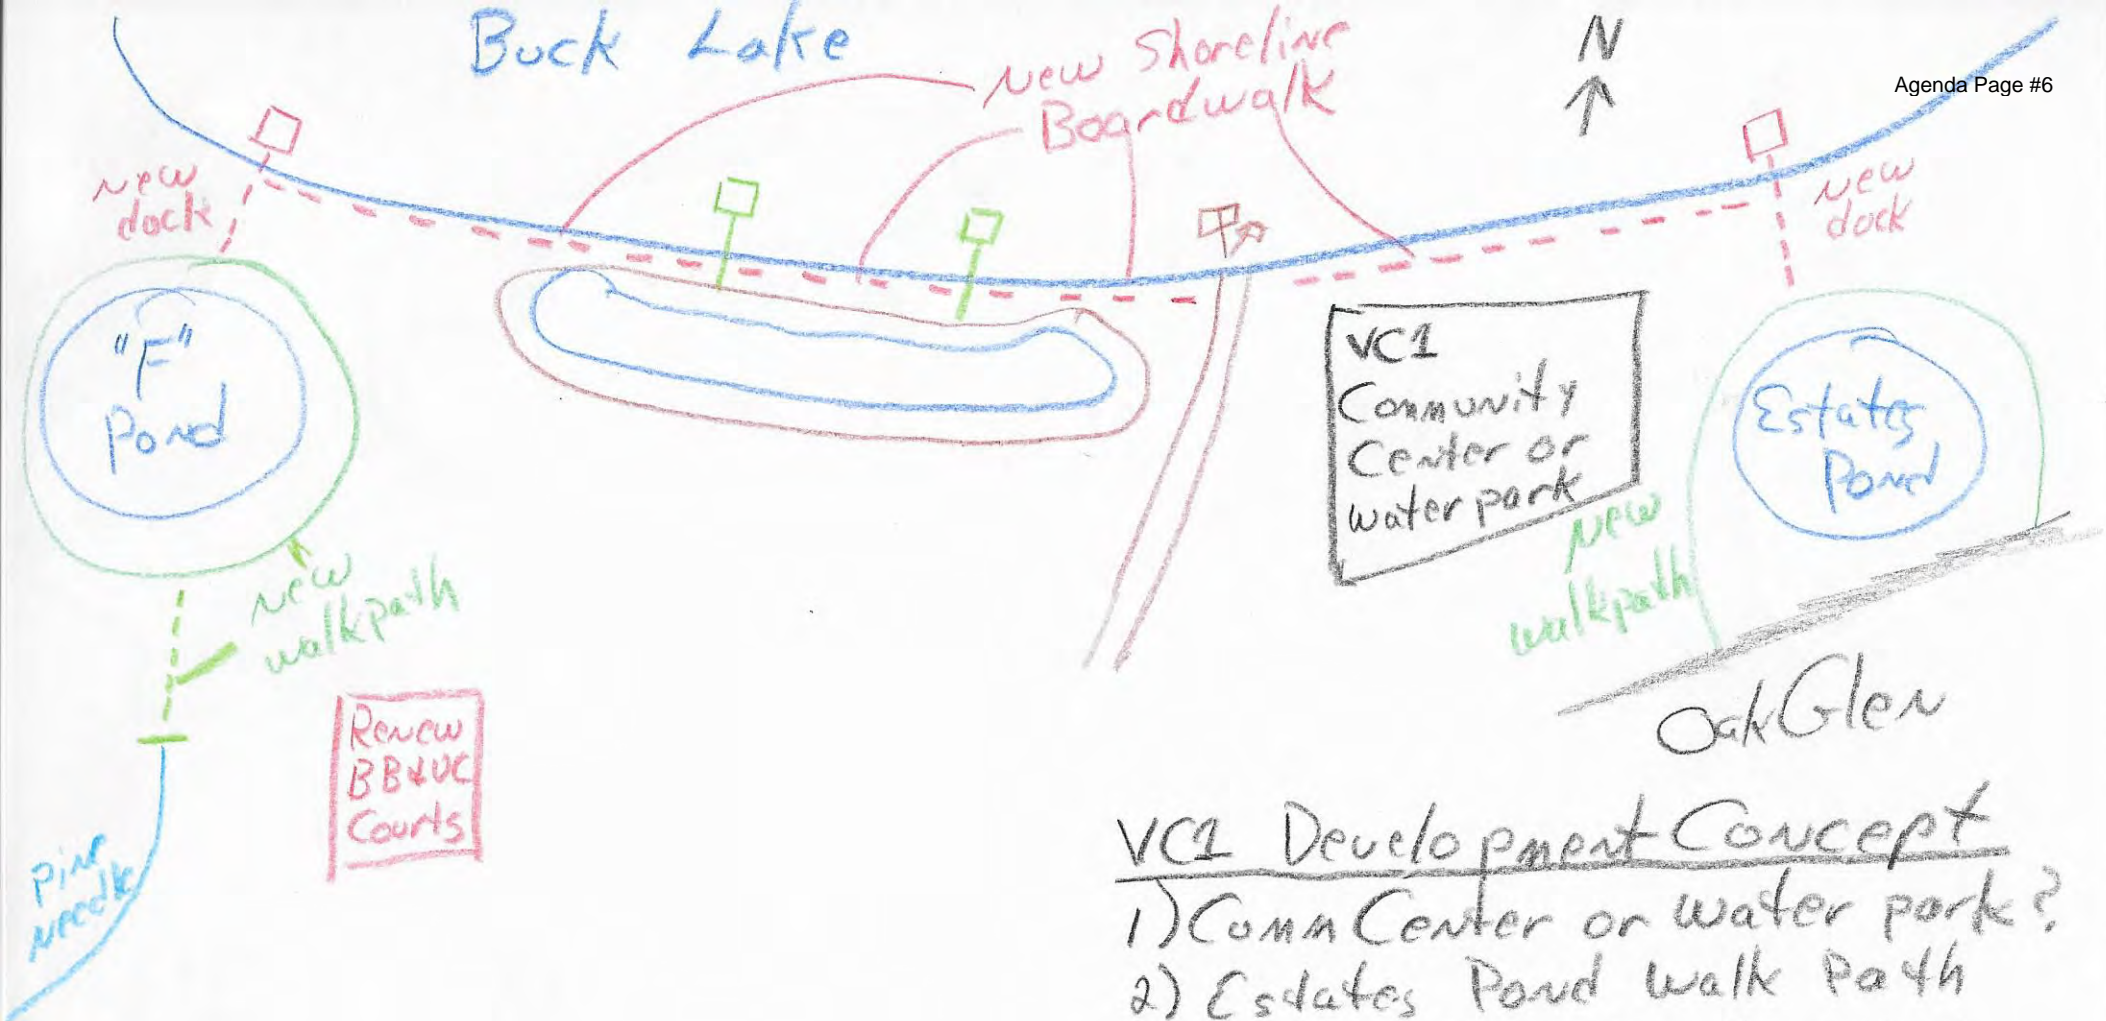 Buck Lake
New Shoreline
Boardwalk
N
Agenda Page #6
New
dock
New
dock
"F"
Pond
VC1
Community
Center or
water park
Estates
Pond
New
walkpath
New
walkpath
Oak Glen
Renew
BB & VC
Courts
Pine
Needle
VC1 Development Concept
1) Comm Center or water park?
2) Estates Pond Walk Path